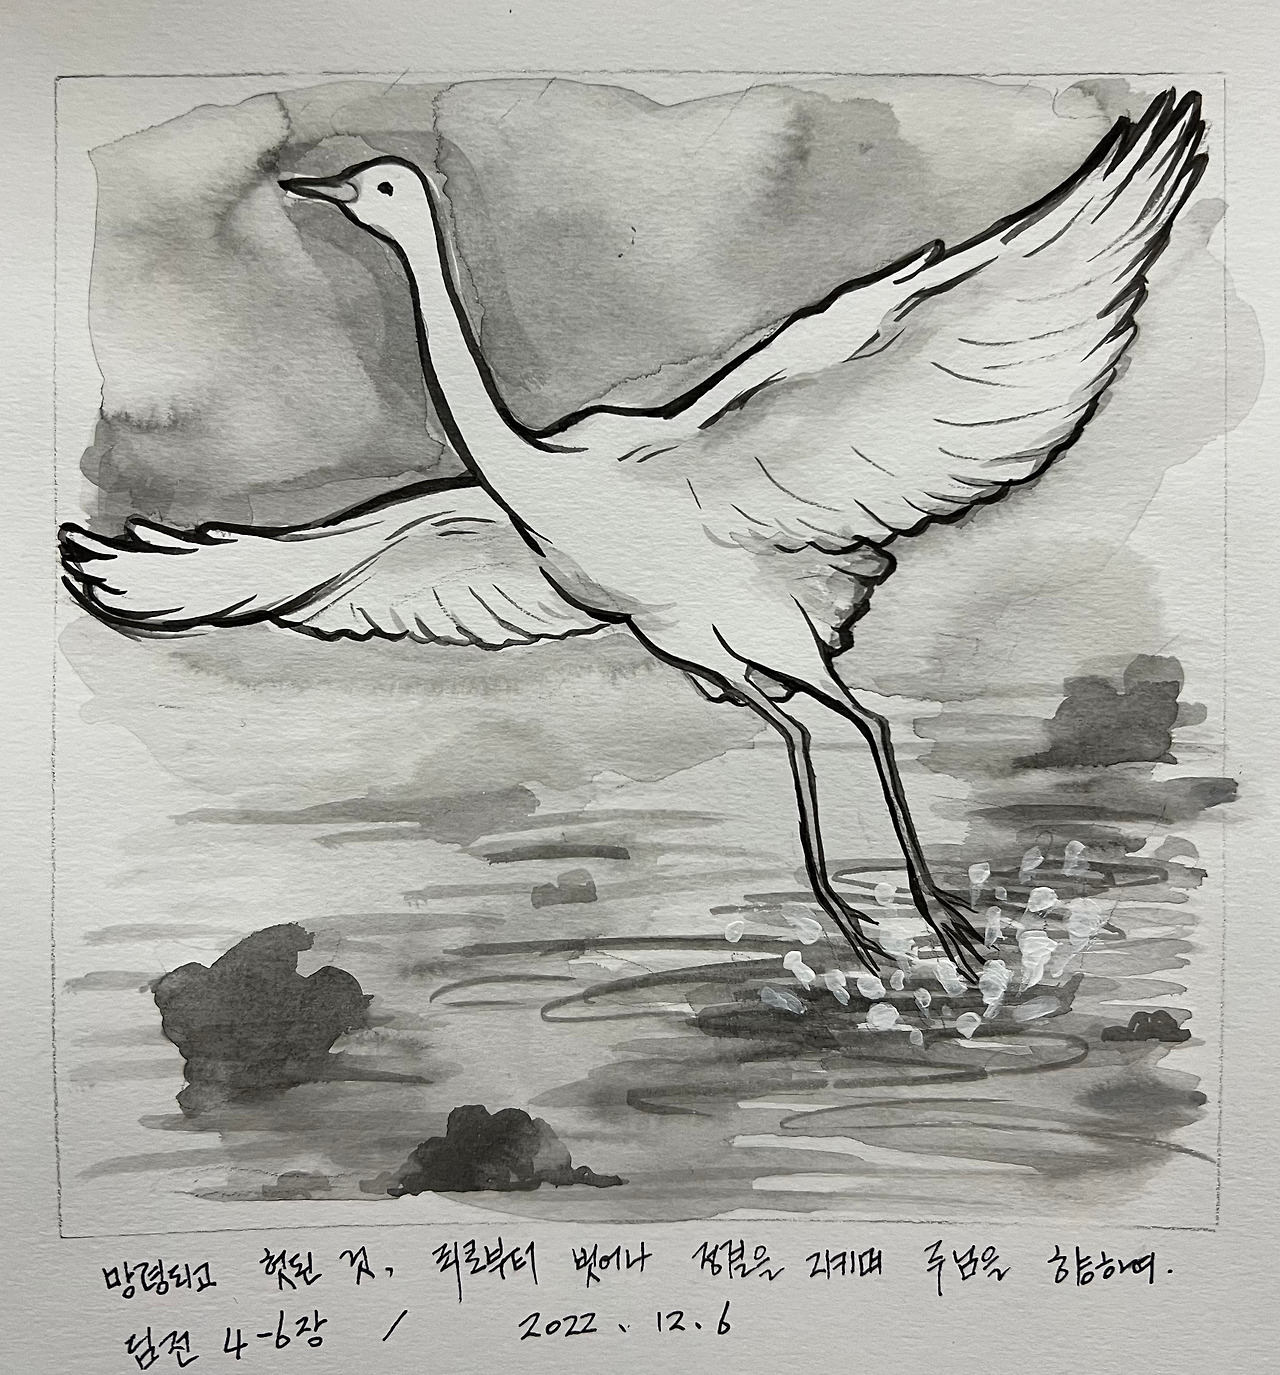 망령되고 헛된 것, 죄로부터 벗어나 정결을 지키며 주님을 향하여.
딤전 4-6장 / 2022. 12. 6